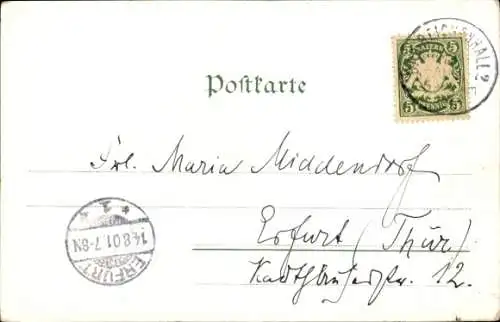 REICHENHALL 2
BAYERN
5 5
PFENNIG
Postkarte
Frl. Maria Middendorf
Erfurt (Thür.)
12.
ERFURT
14.8.01.7-8N
* 1 *